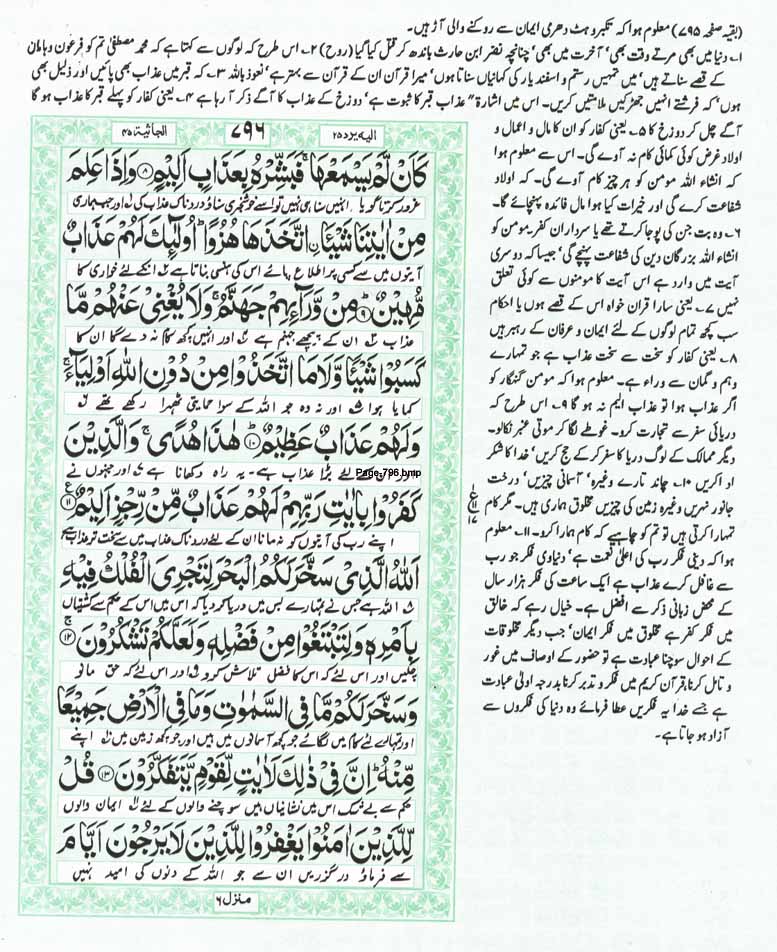 (بقیہ صفحہ ۷۹۵) معلوم ہوا کہ تکبر و ہٹ دھرمی ایمان سے روکنے والی آڑ ہیں۔
۱۔ دنیا میں بھی مرتے وقت بھی' آخرت میں بھی' چنانچہ نضر ابن حارث باندھ کر قتل کیا گیا (روح) ۲۔ اس طرح کہ لوگوں سے کہتا ہے کہ محمد مصطفیٰ تم کو فرعون و ہامان
کے قصے سناتے ہیں' میں تمہیں رستم و اسفند یار کی کہانیاں سناتا ہوں' میرا قرآن ان کے قرآن سے بہتر ہے' نعوذ باللہ ۳۔ کہ قبر میں عذاب بھی پائیں اور ذلیل بھی
ہوں' کہ فرشتے انہیں جھڑکیں ملامتیں کریں۔ اس میں اشارۃ" عذاب قبر کا ثبوت ہے' دوزخ کے عذاب کا آگے ذکر آ رہا ہے ۴۔ یعنی کفار کو پہلے قبر کا عذاب ہو گا
آگے چل کر دوزخ کا ۵۔ یعنی کفار کو ان کا مال و اعمال و
اولاد غرض کوئی کمائی کام نہ آوے گی۔ اس سے معلوم ہوا
کہ انشاء اللہ مومن کو ہر چیز کام آوے گی۔ کہ اولاد
شفاعت کرے گی اور خیرات کیا ہوا مال فائدہ پہنچائے گا۔
۶۔ وہ بت جن کی پوجا کرتے تھے یا سرداران کفر۔ مومن کو
انشاء اللہ بزرگان دین کی شفاعت پہنچے گی' جیسا کہ دوسری
آیت میں وارد ہے اس آیت کا مومنوں سے کوئی تعلق
نہیں ۷۔ یعنی سارا قرآن خواہ اس کے قصے ہوں یا احکام
سب کچھ تمام لوگوں کے لئے ایمان و عرفان کے رہبر ہیں
۸۔ یعنی کفار کو سخت سے سخت عذاب ہے جو تمہارے
وہم و گمان سے وراء ہے۔ معلوم ہوا کہ مومن گنہگار کو
اگر عذاب ہوا تو عذاب الیم نہ ہو گا ۹۔ اس طرح کہ
دریائی سفر سے تجارت کرو۔ غوطے لگا کر موتی عنبر نکالو۔
دیگر ممالک کے لوگ دریا کا سفر کر کے حج کریں' خدا کا شکر
ادا کریں ۱۰۔ چاند تارے وغیرہ' آسمانی چیزیں' درخت
جانور نہریں وغیرہ زمین کی چیزیں مخلوق ہماری ہیں۔ مگر کام
تمہارا کرتی ہیں تو تم کو چاہیے کہ کام ہمارا کرو۔ ۱۱۔ معلوم
ہوا کہ دینی فکر رب کی اعلیٰ نعمت ہے' دنیاوی فکر جو رب
سے غافل کرے عذاب ہے ایک ساعت کی فکر ہزار سال
کے محض زبانی ذکر سے افضل ہے۔ خیال رہے کہ خالق
میں فکر کفر ہے مخلوق میں فکر ایمان' جب دیگر مخلوقات
کے احوال سوچنا عبادت ہے تو حضور کے اوصاف میں غور
و تامل کرنا' قرآن کریم میں فکر و تدبر کرنا بدرجہ اولیٰ عبادت
ہے جسے خدا یہ فکریں عطا فرمائے وہ دنیا کی فکروں سے
آزاد ہو جاتا ہے۔
الیہ یرد ۲۵
۷۹۶
الجاثیۃ ۴۵
كَاَنْ لَّمْ يَسْمَعْهَا ۚ فَبَشِّرْهُ بِعَذَابٍ اَلِيْمٍ ﴿۸﴾ وَاِذَا عَلِمَ
غرور کرتا گویا انہیں سنا ہی نہیں تو اسے خوشخبری سناؤ دردناک عذاب کی ل اور جب ہماری
مِنْ اٰيٰتِنَا شَيْـًٔا ۨاتَّخَذَهَا هُزُوًا ؕ اُولٰٓئِكَ لَهُمْ عَذَابٌ
آیتوں میں سے کسی پر اطلاع پائے اس کی ہنسی بناتا ہے ان کے لئے خواری کا
مُّهِيْنٌ ﴿۹﴾ مِنْ وَّرَآئِهِمْ جَهَنَّمُ ۚ وَلَا يُغْنِيْ عَنْهُمْ مَّا
عذاب ان کے پیچھے جہنم ہے اور انہیں کچھ کام نہ دے گا ان کا
كَسَبُوْا شَيْـًٔا وَّلَا مَا اتَّخَذُوْا مِنْ دُوْنِ اللّٰهِ اَوْلِيَآءَ ۚ
کمایا ہوا اور نہ وہ جو اللہ کے سوا حمایتی ٹھہرا رکھے تھے
وَلَهُمْ عَذَابٌ عَظِيْمٌ ﴿۱۰﴾ هٰذَا هُدًى ۚ وَالَّذِيْنَ
اور ان کے لئے بڑا عذاب ہے۔ یہ راہ دکھانا ہے اور جنہوں نے
Page-796.bmp
كَفَرُوْا بِاٰيٰتِ رَبِّهِمْ لَهُمْ عَذَابٌ مِّنْ رِّجْزٍ اَلِيْمٌ ﴿۱۱﴾
اپنے رب کی آیتوں کو نہ مانا ان کے لئے دردناک عذاب میں سے سخت تر عذاب ہے
اَللّٰهُ الَّذِيْ سَخَّرَ لَكُمُ الْبَحْرَ لِتَجْرِيَ الْفُلْكُ فِيْهِ
اللہ ہے جس نے تمہارے بس میں دریا کر دیا کہ اس میں اس کے حکم سے کشتیاں
بِاَمْرِهٖ وَلِتَبْتَغُوْا مِنْ فَضْلِهٖ وَلَعَلَّكُمْ تَشْكُرُوْنَ ﴿۱۲﴾
چلیں اور اس لئے کہ اس کا فضل تلاش کرو اور اس لئے کہ حق مانو
وَسَخَّرَ لَكُمْ مَّا فِي السَّمٰوٰتِ وَمَا فِي الْاَرْضِ جَمِيْعًا
اور تمہارے لئے کام میں لگائے جو کچھ آسمانوں میں ہیں اور جو کچھ زمین میں اپنے
مِّنْهُ ؕ اِنَّ فِيْ ذٰلِكَ لَاٰيٰتٍ لِّقَوْمٍ يَّتَفَكَّرُوْنَ ﴿۱۳﴾ قُلْ
حکم سے بے شک اس میں نشانیاں ہیں سوچنے والوں کے لئے ایمان والوں
لِّلَّذِيْنَ اٰمَنُوْا يَغْفِرُوْا لِلَّذِيْنَ لَا يَرْجُوْنَ اَيَّامَ
سے فرماؤ درگزریں ان سے جو اللہ کے دنوں کی امید نہیں
منزل ۶